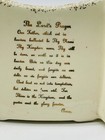 The Lord's Prayer
Our Father, which art in
heaven, hallowed be Thy Name
Thy Kingdom come, Thy will
be done, on earth as it is in
heaven. Give us this day our
daily bread, and forgive us our
debts, as we forgive our debtors.
And lead us not into temptation,
but deliver us from evil. For
Thine is the Kingdom, and the
power and the glory forever.
Amen.